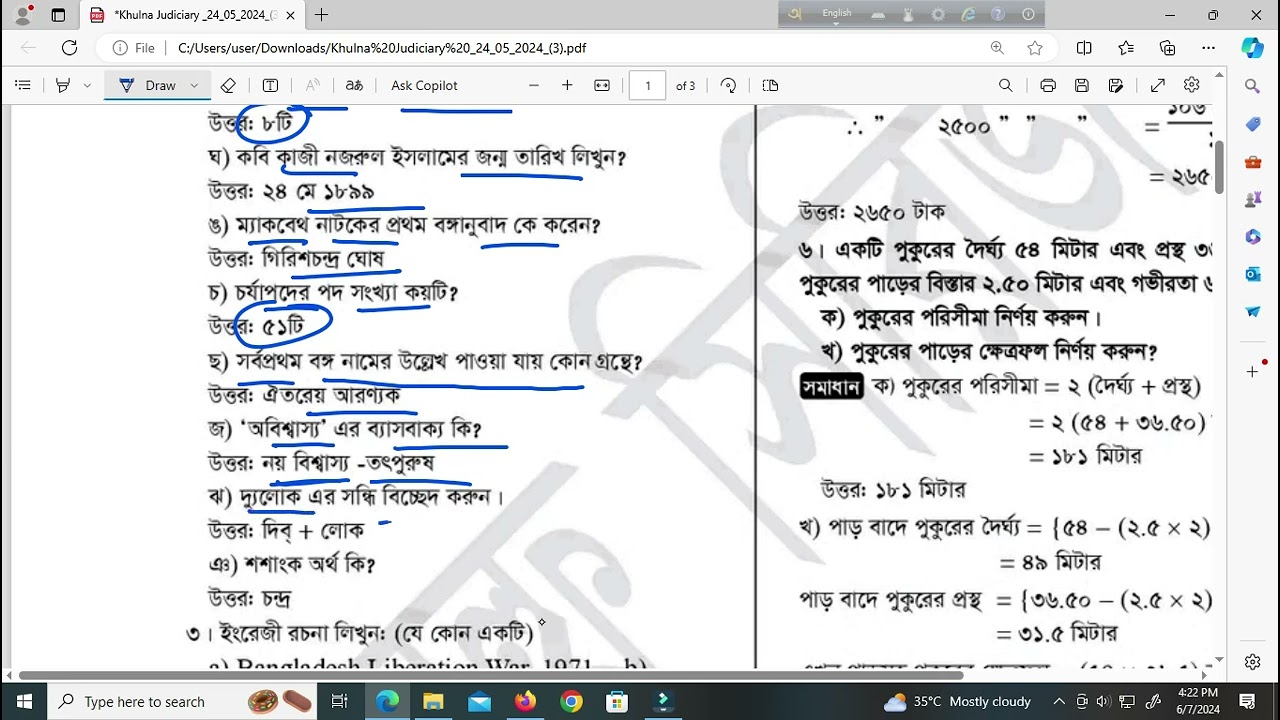 *Khulna Judiciary _24_05_2024_(3
English
File
C:/Users/user/Downloads/Khulna%20Judiciary%20_24_05_2024_(3).pdf
Draw
Ask Copilot
1
of 3
উত্তর: ৮টি
ঘ) কবি কাজী নজরুল ইসলামের জন্ম তারিখ লিখুন?
উত্তর: ২৪ মে ১৮৯৯
ঙ) ম্যাকবেথ নাটকের প্রথম বঙ্গানুবাদ কে করেন?
উত্তর: গিরিশচন্দ্র ঘোষ
চ) চর্যাপদের পদ সংখ্যা কয়টি?
উত্তর: ৫১টি
ছ) সর্বপ্রথম বঙ্গ নামের উল্লেখ পাওয়া যায় কোন গ্রন্থে?
উত্তর: ঐতরেয় আরণ্যক
জ) ‘অবিশ্বাস্য’ এর ব্যাসবাক্য কি?
উত্তর: নয় বিশ্বাস্য -তৎপুরুষ
ঝ) দ্যুলোক এর সন্ধি বিচ্ছেদ করুন।
উত্তর: দিব্ + লোক
ঞ) শশাংক অর্থ কি?
উত্তর: চন্দ্র
৩। ইংরেজী রচনা লিখুন: (যে কোন একটি)
a) Bangladesh Liberation War, 1971 b)
∴ ” ২৫০০ ” ” ” =
= ২৬৫
উত্তর: ২৬৫০ টাক
৬। একটি পুকুরের দৈর্ঘ্য ৫৪ মিটার এবং প্রস্থ ৩
পুকুরের পাড়ের বিস্তার ২.৫০ মিটার এবং গভীরতা
ক) পুকুরের পরিসীমা নির্ণয় করুন।
খ) পুকুরের পাড়ের ক্ষেত্রফল নির্ণয় করুন?
সমাধান ক) পুকুরের পরিসীমা = ২ (দৈর্ঘ্য + প্রস্থ)
= ২ (৫৪ + ৩৬.৫০)
= ১৮১ মিটার
উত্তর: ১৮১ মিটার
খ) পাড় বাদে পুকুরের দৈর্ঘ্য = {৫৪ – (২.৫ × ২)
= ৪৯ মিটার
পাড় বাদে পুকুরের প্রস্থ = {৩৬.৫০ – (২.৫ × ২)
= ৩১.৫ মিটার
Type here to search
35°C Mostly cloudy
4:22 PM
6/7/2024